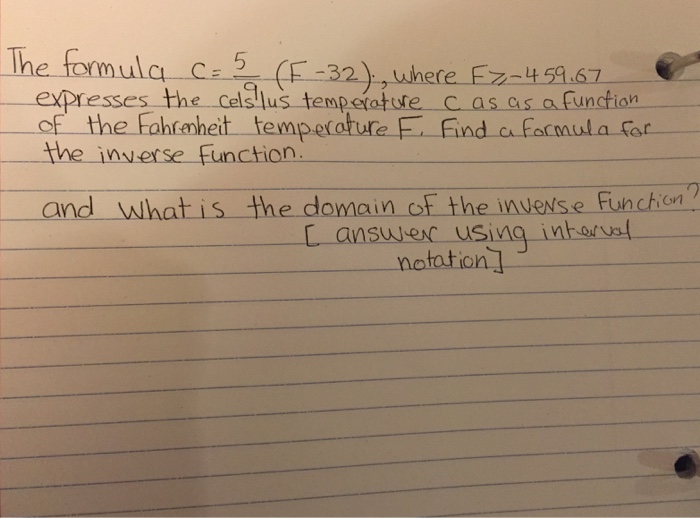 The formula C = 5/9 (F - 32)., where F ≥ -459.67
expresses the celsius temperature C as as a function
of the Fahrenheit temperature F. Find a formula for
the inverse function.
and what is the domain of the inverse function?
[ answer using interval
notation]